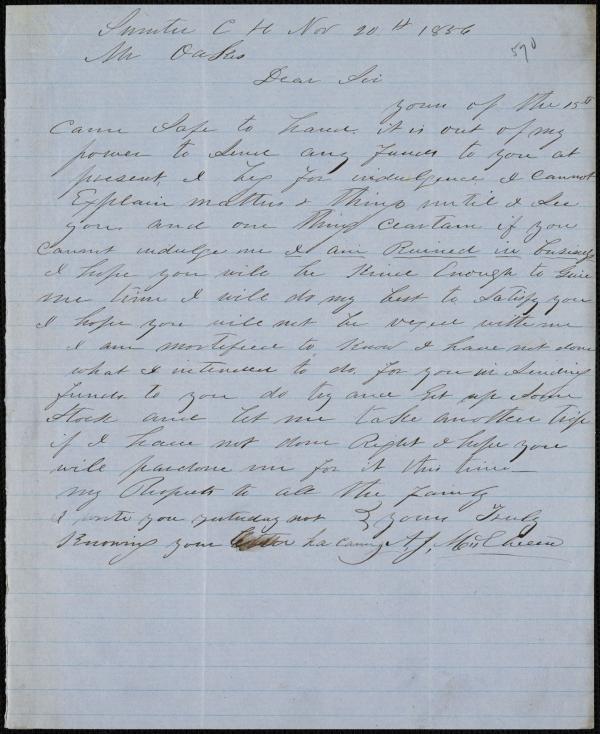 Sumter C H Nov 20th 1856
570
Mr Oakes
Dear Sir
yours of the 15th
Came Safe to hand. it is out of my
power to Send any funds to you at
present, I beg for indulgence I Cannot
Explain matters & things until I See
you. and one thing ceartain if you
Cannot indulge me I am Ruined in business
I hope you will be Kind Enough to give
me time I will do my best to Satisfy you
I hope you will not be vexed with me
I am mortified to Know I have not done
what I intended to do, for you in Sending
funds to you do try and Get up Some
Stock and let me take another trip
if I have not done Right I hope you
will pardone me for it this time —
my Respects to all the family
I wrote you yesterday not yours Truly
Knowing your had A. J. McElveen